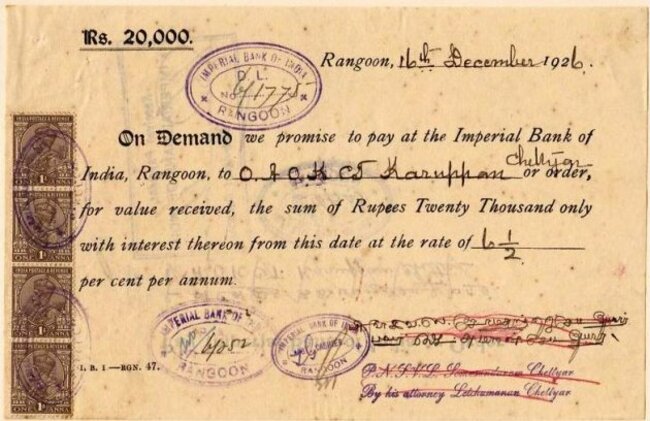 Rs. 20,000.
IMPERIAL BANK OF INDIA
D. L.
No 6/1775
RANGOON
Rangoon, 16th December 1926.
On Demand we promise to pay at the Imperial Bank of
India, Rangoon, to O. A. O. K. CT Karuppan Chettyar or order,
for value received, the sum of Rupees Twenty Thousand only
with interest thereon from this date at the rate of 6 1/2
per cent per annum.
INDIA POSTAGE & REVENUE
1A
ONE ANNA
INDIA POSTAGE & REVENUE
1A
ONE ANNA
INDIA POSTAGE & REVENUE
1A
ONE ANNA
INDIA POSTAGE & REVENUE
1A
ONE ANNA
IMPERIAL BANK OF
No
RANGOON
IMPERIAL BANK OF INDIA
RANGOON
I. B. I—RGN. 47.
Chettyar
By his attorney Letchumanan Chettyar